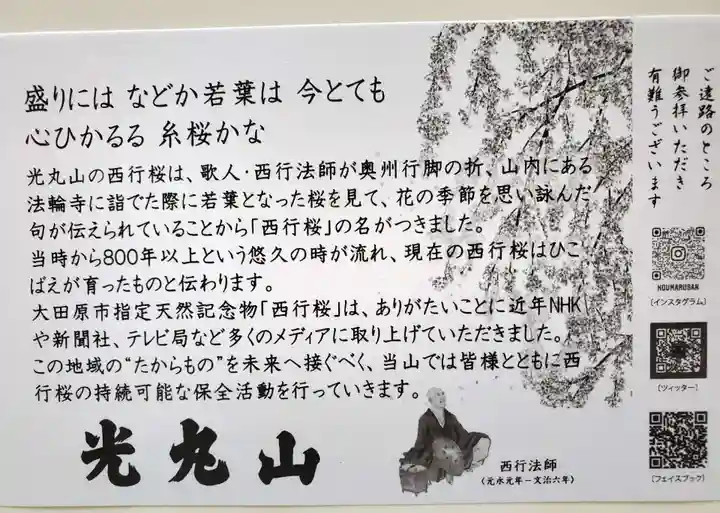 盛りには などか若葉は 今とても
心ひかるる 糸桜かな
光丸山の西行桜は、歌人・西行法師が奥州行脚の折、山内にある
法輪寺に詣でた際に若葉となった桜を見て、花の季節を思い詠んだ
句が伝えられていることから「西行桜」の名がつきました。
当時から800年以上という悠久の時が流れ、現在の西行桜はひこ
ばえが育ったものと伝わります。
大田原市指定天然記念物「西行桜」は、ありがたいことに近年NHK
や新聞社、テレビ局など多くのメディアに取り上げていただきました。
この地域の“たからもの”を未来へ接ぐべく、当山では皆様とともに西
行桜の持続可能な保全活動を行っていきます。
光丸山
西行法師
(元永元年-文治六年)
ご遠路のところ
御参拝いただき
有難うございます
KOUMARUSAN
[インスタグラム]
[ツィッター]
[フェイスブック]